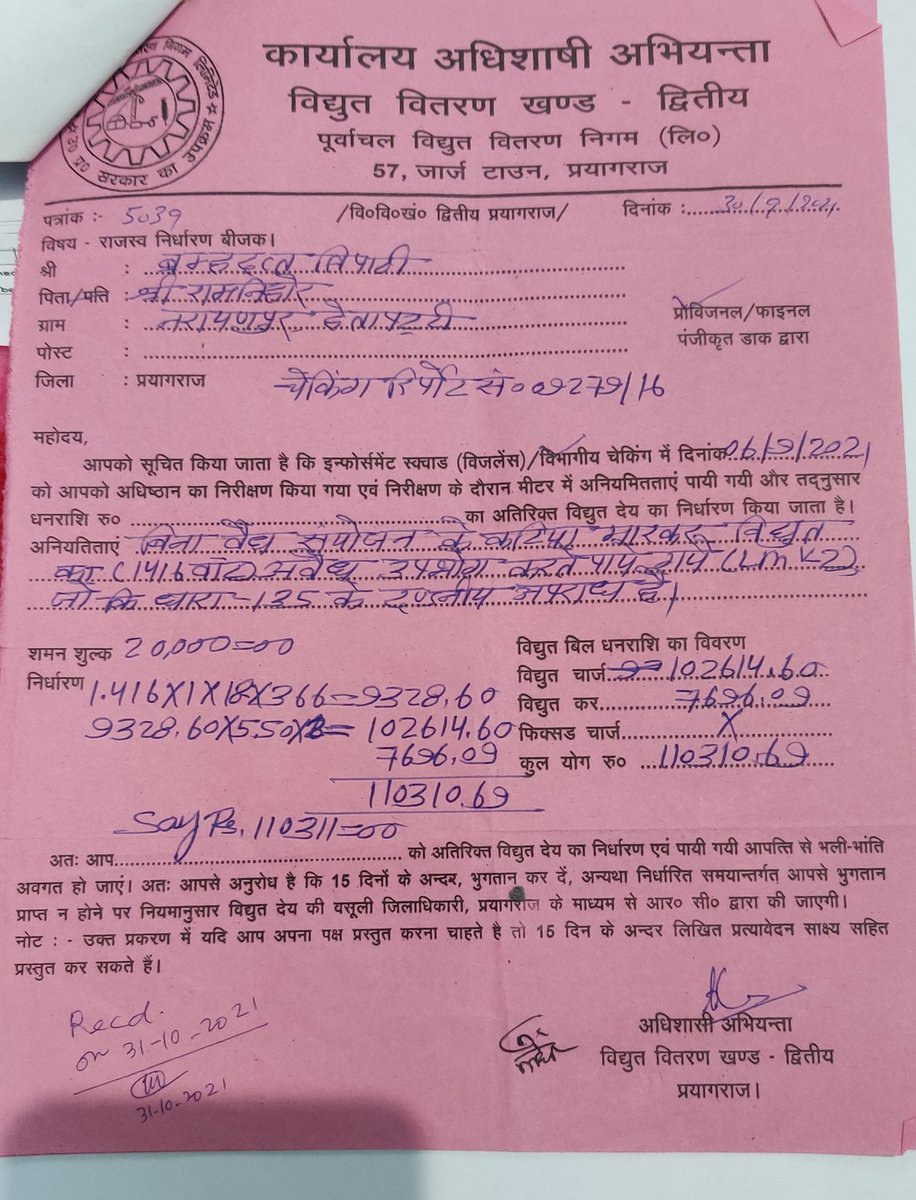 कार्यालय अधिशाषी अभियन्ता
विद्युत वितरण खण्ड - द्वितीय
पूर्वाचल विद्युत वितरण निगम (लि०)
57, जार्ज टाउन, प्रयागराज
उ० प्र० सरकार का उपक्रम
पत्रांक :- 5039 /वि०वि०खं० द्वितीय प्रयागराज/ दिनांक : 30/9/2021
विषय - राजस्व निर्धारण बीजक।
श्री : ब्रम्हदत्त त्रिपाठी
पिता/पत्ति : श्री रामनिहोर
ग्राम : नरायणपुर
प्रोविजनल/फाइनल
पंजीकृत डाक द्वारा
पोस्ट :
जिला : प्रयागराज
चेकिंग रिर्पोट सं० 09279/16
महोदय,
आपको सूचित किया जाता है कि इन्फोर्समेंट स्क्वाड (विजलेंस)/विभागीय चेकिंग में दिनांक 06/9/2021
को आपको अधिष्ठान का निरीक्षण किया गया एवं निरीक्षण के दौरान मीटर में अनियमितताएं पायी गयी और तद्नुसार
धनराशि रु० का अतिरिक्त विद्युत देय का निर्धारण किया जाता है।
अनियतिताएं बिना वैध संयोजन के कटिया मारकर विद्युत
का (1416 वाट) अवैध उपभोग करते पाये गये (LMV-2)
जो कि धारा-135 के दण्डनीय अपराध है।
शमन शुल्क 20,000=00
निर्धारण
1.416X1X18X366=9328.60
9328.60X5.50X2= 102614.60
7696.09
110310.69
Say Rs. 110311=00
विद्युत बिल धनराशि का विवरण
विद्युत चार्ज 102614.60
विद्युत कर 7696.09
फिक्सड चार्ज X
कुल योग रु० 110310.69
अतः आप को अतिरिक्त विद्युत देय का निर्धारण एवं पायी गयी आपत्ति से भली-भांति
अवगत हो जाएं। अतः आपसे अनुरोध है कि 15 दिनों के अन्दर, भुगतान कर दें, अन्यथा निर्धारित समयान्तर्गत आपसे भुगतान
प्राप्त न होने पर नियमानुसार विद्युत देय की वसूली जिलाधिकारी, प्रयागराज के माध्यम से आर० सी० द्वारा की जाएगी।
नोट : - उक्त प्रकरण में यदि आप अपना पक्ष प्रस्तुत करना चाहते है तो 15 दिन के अन्दर लिखित प्रत्यावेदन साक्ष्य सहित
प्रस्तुत कर सकते हैं।
Recd.
on 31-10-2021
31-10-2021
अधिशासी अभियन्ता
विद्युत वितरण खण्ड - द्वितीय
प्रयागराज।